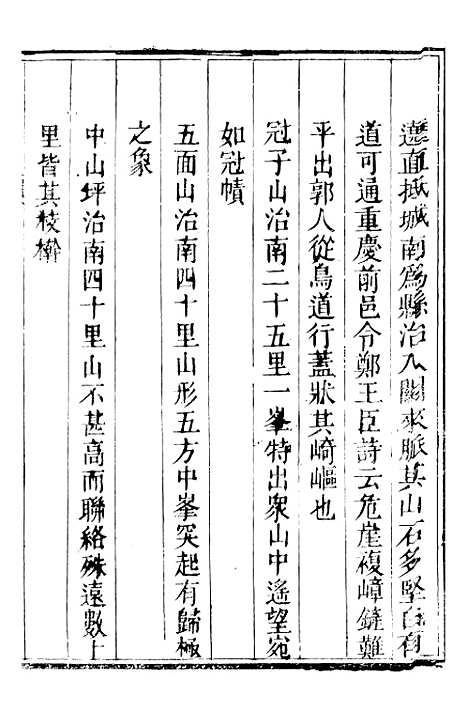 遶直抵城南為縣治入關來脈其山石多堅白有
道可通重慶前邑令鄭王臣詩云危崖複嶂鏟難
平出郭人從鳥道行蓋狀其崎嶇也
冠子山治南二十五里一峯特出衆山中遙望宛
如冠幘
五面山治南四十里山形五方中峯突起有歸極
之象
中山坪治南四十里山不甚高而聯絡殊遠數十
里皆其枝榦